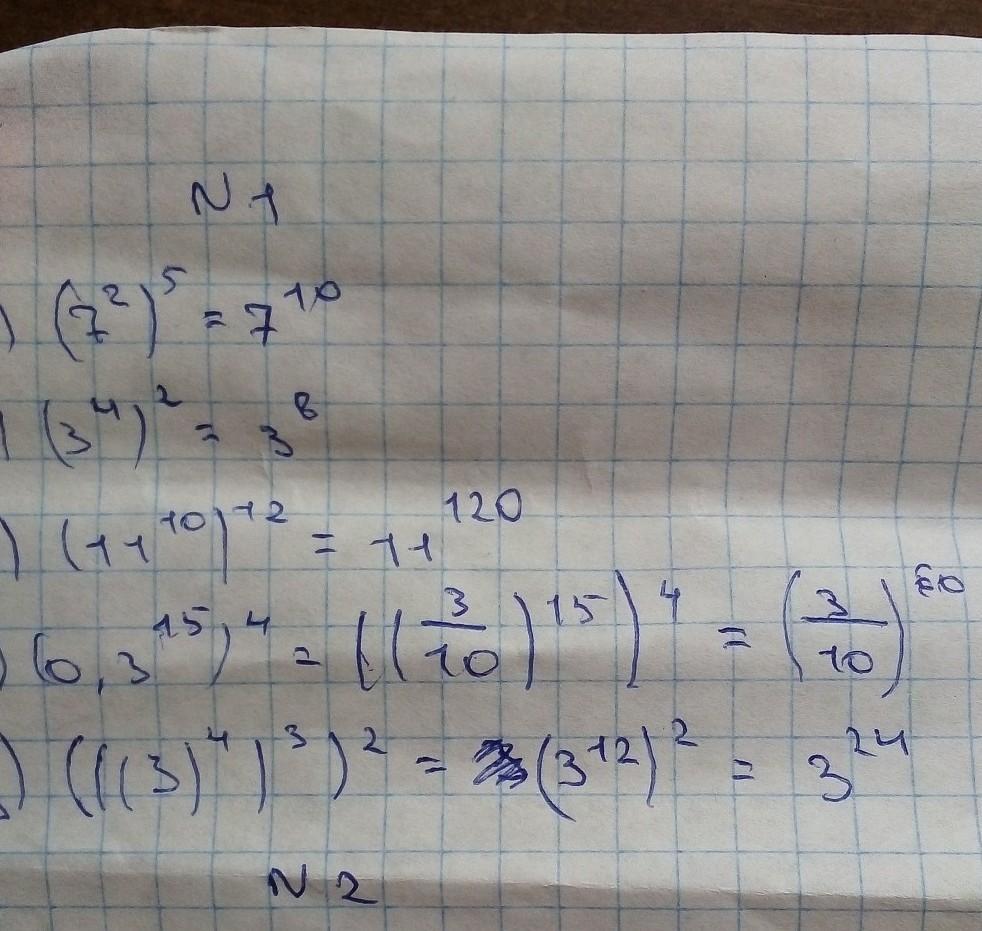 N 1
) (7²)⁵ = 7¹⁰
) (3⁴)² = 3⁸
) (11¹⁰)¹² = 11¹²⁰
) (0,3¹⁵)⁴ = ((3/10)¹⁵)⁴ = (3/10)⁶⁰
) (((3)⁴)³)² = (3¹²)² = 3²⁴
N 2